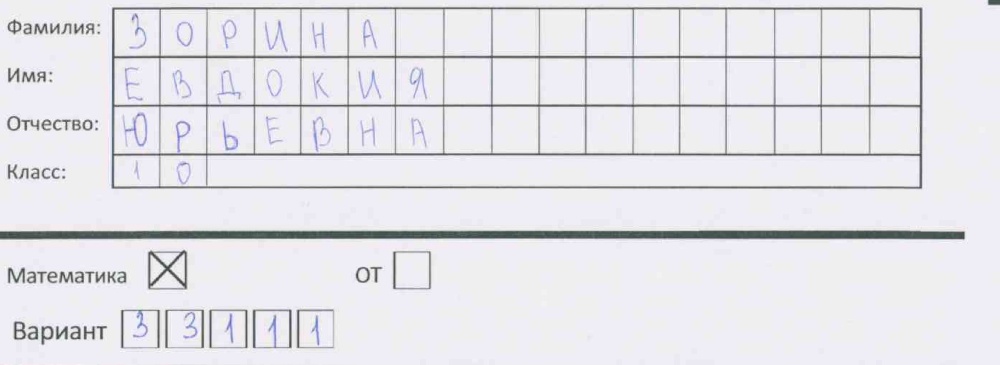 Фамилия: ЗОРИНА
Имя: ЕВДОКИЯ
Отчество: ЮРЬЕВНА
Класс: 10
Математика ☒ ОТ ☐
Вариант 33111